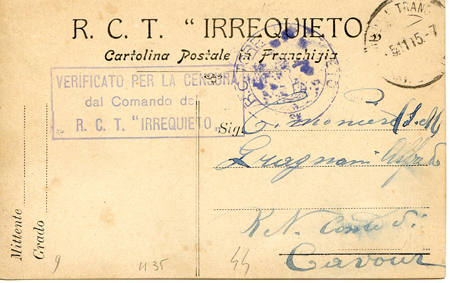 R. C. T. "IRREQUIETO"
Cartolina Postale in Franchigia
VERIFICATO PER LA CENSURA
dal Comando del
R. C. T. "IRREQUIETO"
Sig.
Gragnani
R. N. Conte di
Cavour
Mittente
Grado
9
1135
44